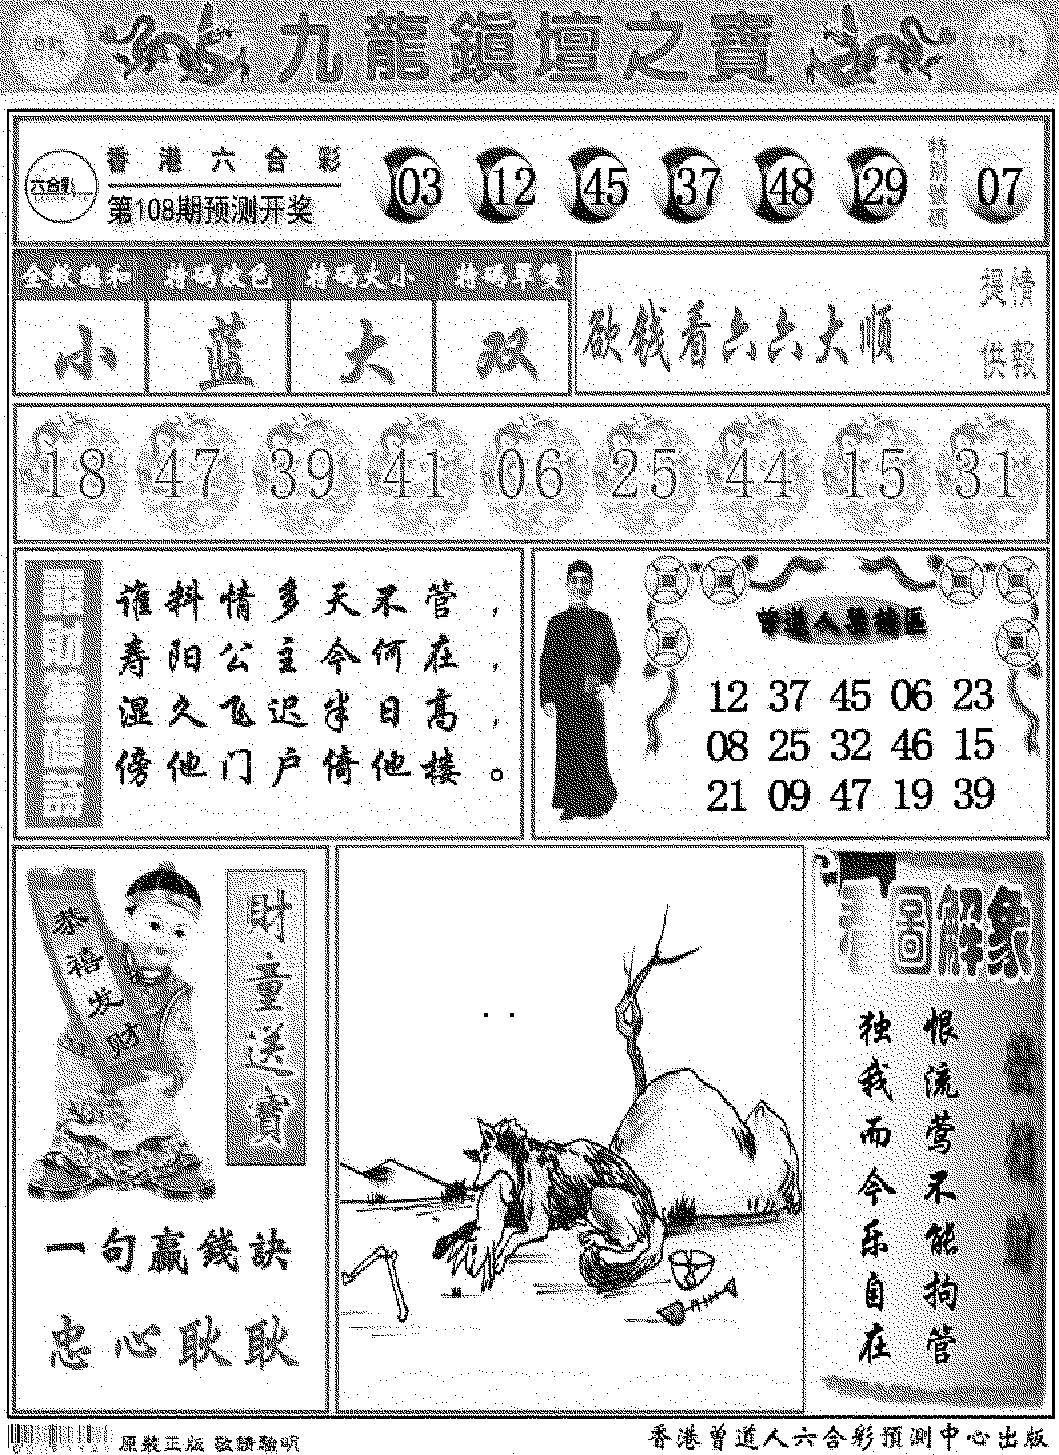 九龍鎮壇之寶
香港六合彩
六合彩
第108期预测开奖
03 12 45 37 48 29
特別號碼
07
特碼波色 特碼大小 特碼單雙
小 蓝 大 双
欲钱看六六大顺
提供
情報
18 47 39 41 06 25 44 15 31
谁料情多天不管，
寿阳公主今何在，
湿久飞迟半日高，
傍他门户倚他楼。
12 37 45 06 23
08 25 32 46 15
21 09 47 19 39
恭禧发财
財童送寶
一句赢錢訣
忠心耿耿
圖解象
恨流莺不能拘管
独我而今乐自在
原裝正版 敬請驗明
香港曾道人六合彩預測中心出版